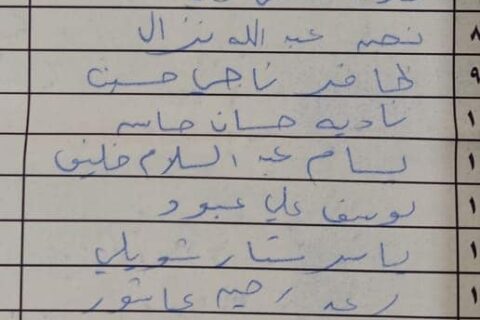 ٨ نصير عبد الله نزال
٩ ظافر ناجي حسين
١ نادية حسان جاسم
١ بسام عبد السلام خليفة
١ يوسف علي عبود
١ ياسر ستار شويلي
١ رعد رحيم عاشور